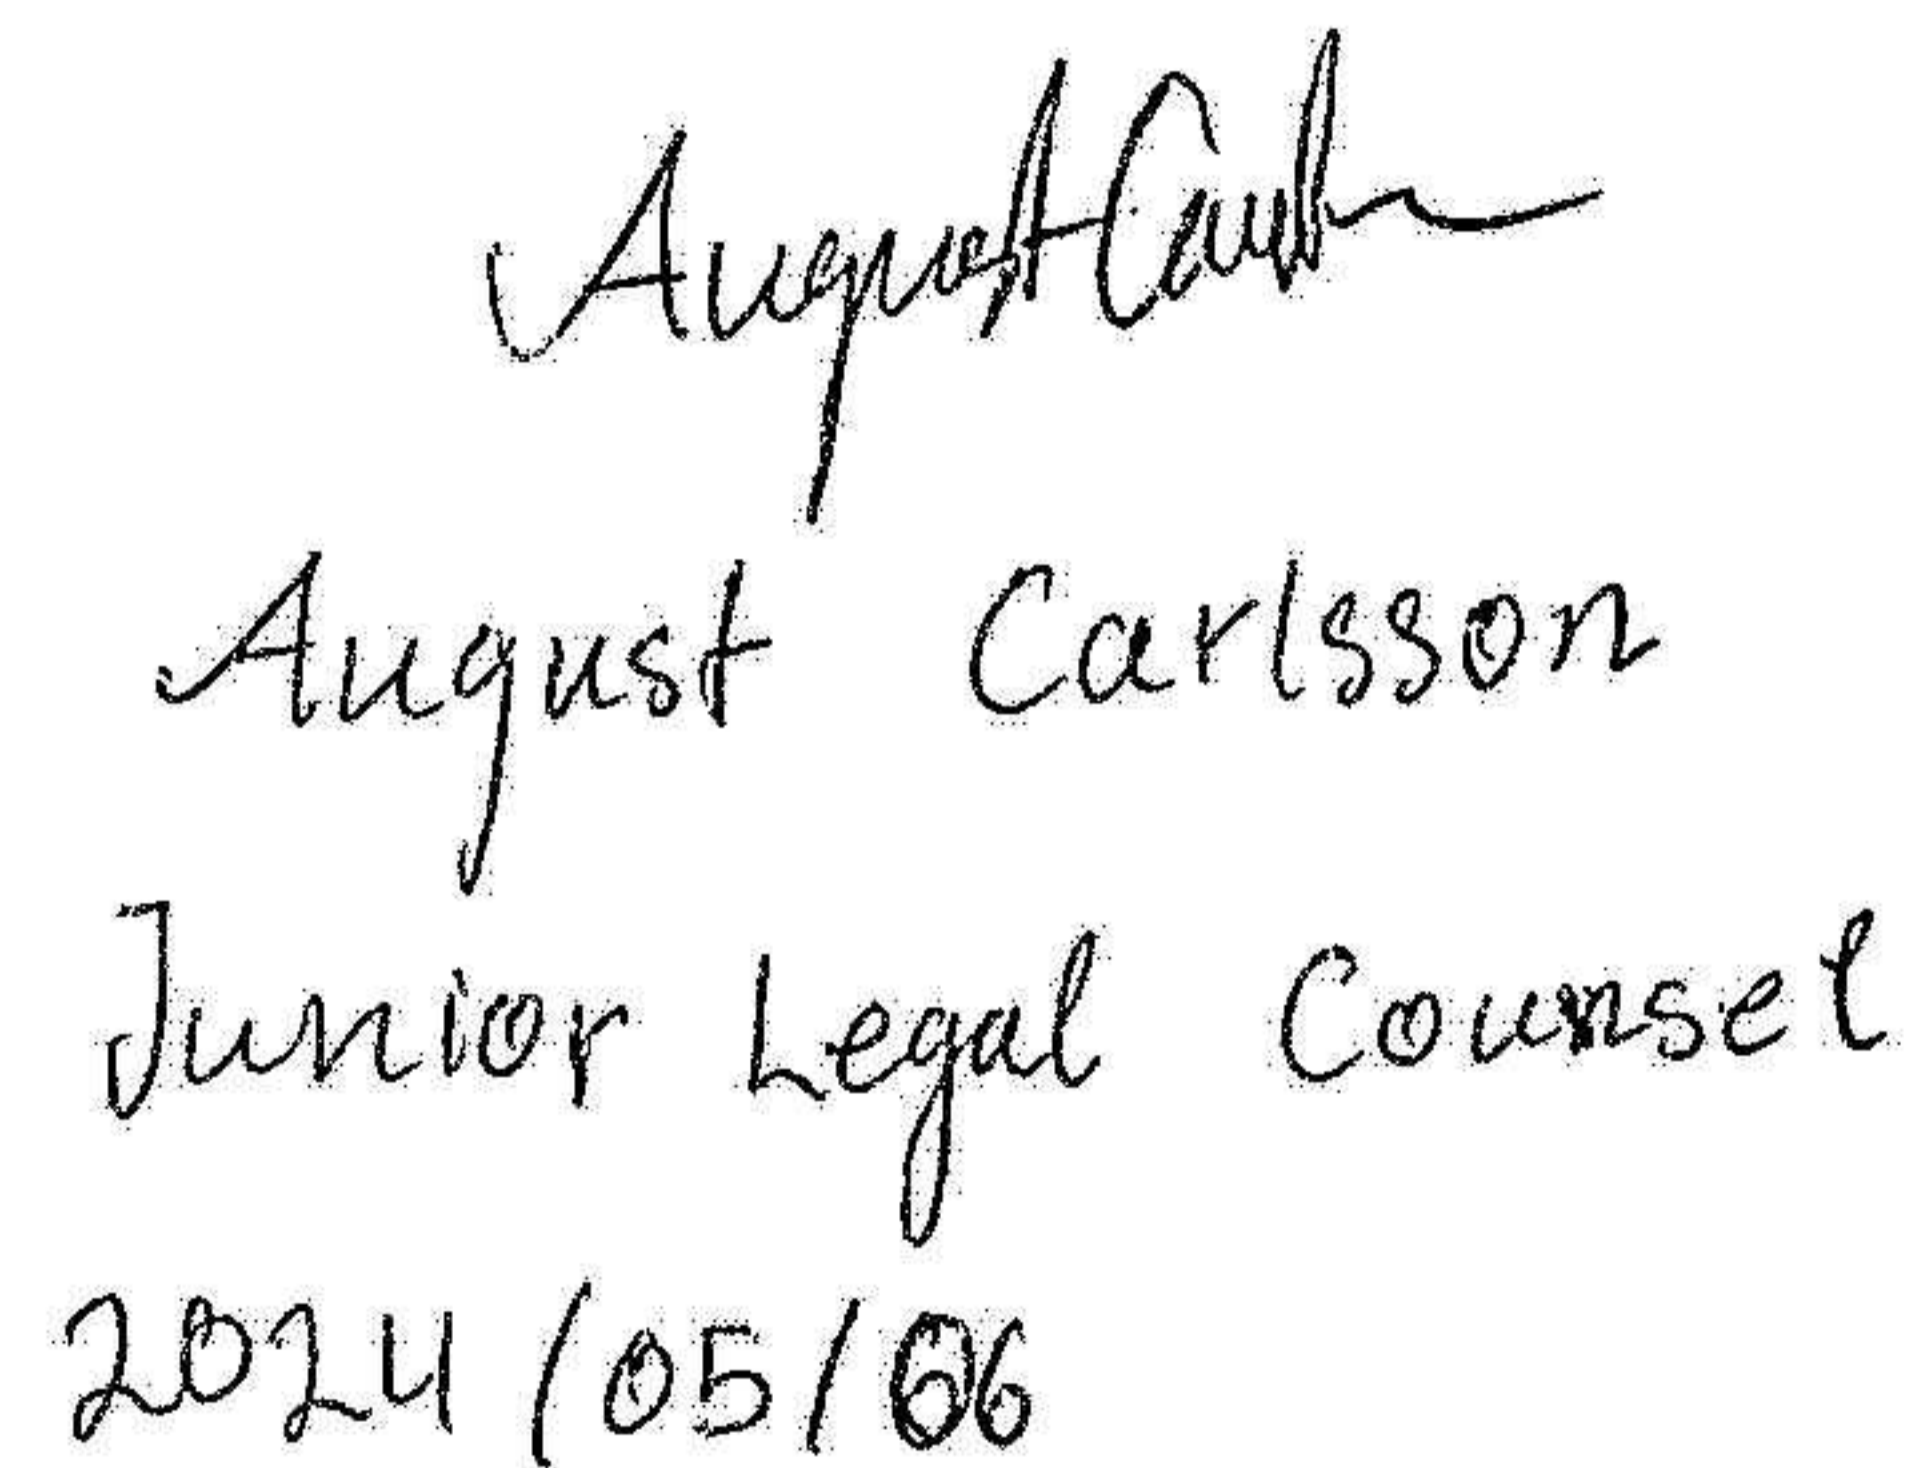 August Carlsson
August Carlsson
Junior Legal Counsel
2024/05/06